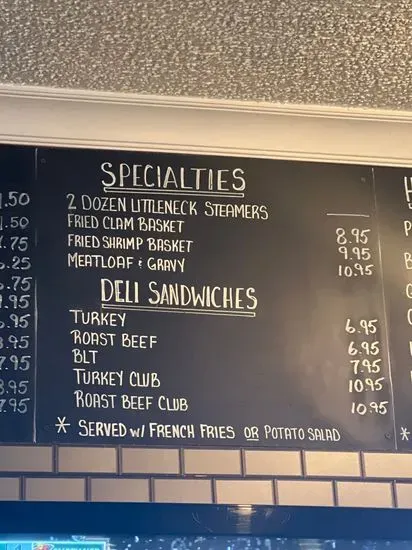 SPECIALTIES
2 DOZEN LITTLENECK STEAMERS ____
FRIED CLAM BASKET 8.95
FRIED SHRIMP BASKET 9.95
MEATLOAF & GRAVY 10.95
DELI SANDWICHES
TURKEY 6.95
ROAST BEEF 6.95
BLT 7.95
TURKEY CLUB 10.95
ROAST BEEF CLUB 10.95
* SERVED W/ FRENCH FRIES OR POTATO SALAD